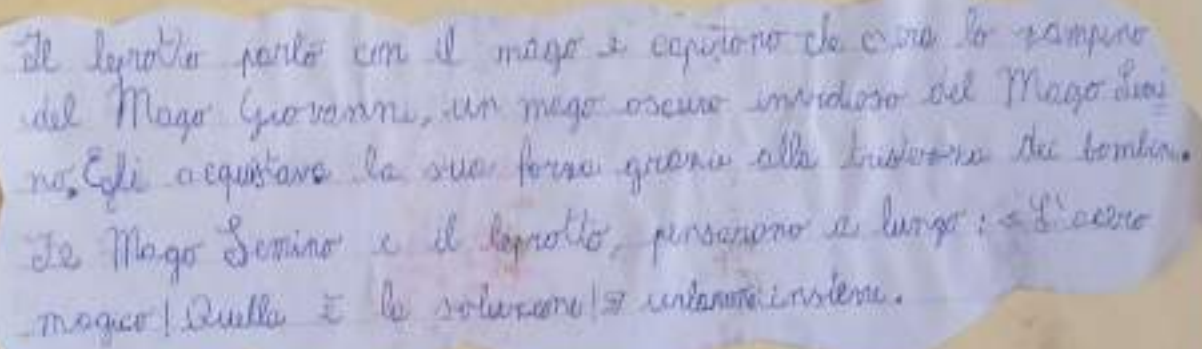 Il leprotto parlò con il mago e capirono che c'era lo zampino
del Mago Giovanni, un mago oscuro invidioso del Mago Semi
no. Egli acquistava la sua forza grazie alla tristezza dei bambini.
Il Mago Semino e il leprotto, pensarono a lungo: «L'acero
magico! Quella è la soluzione!» urlarono insieme.